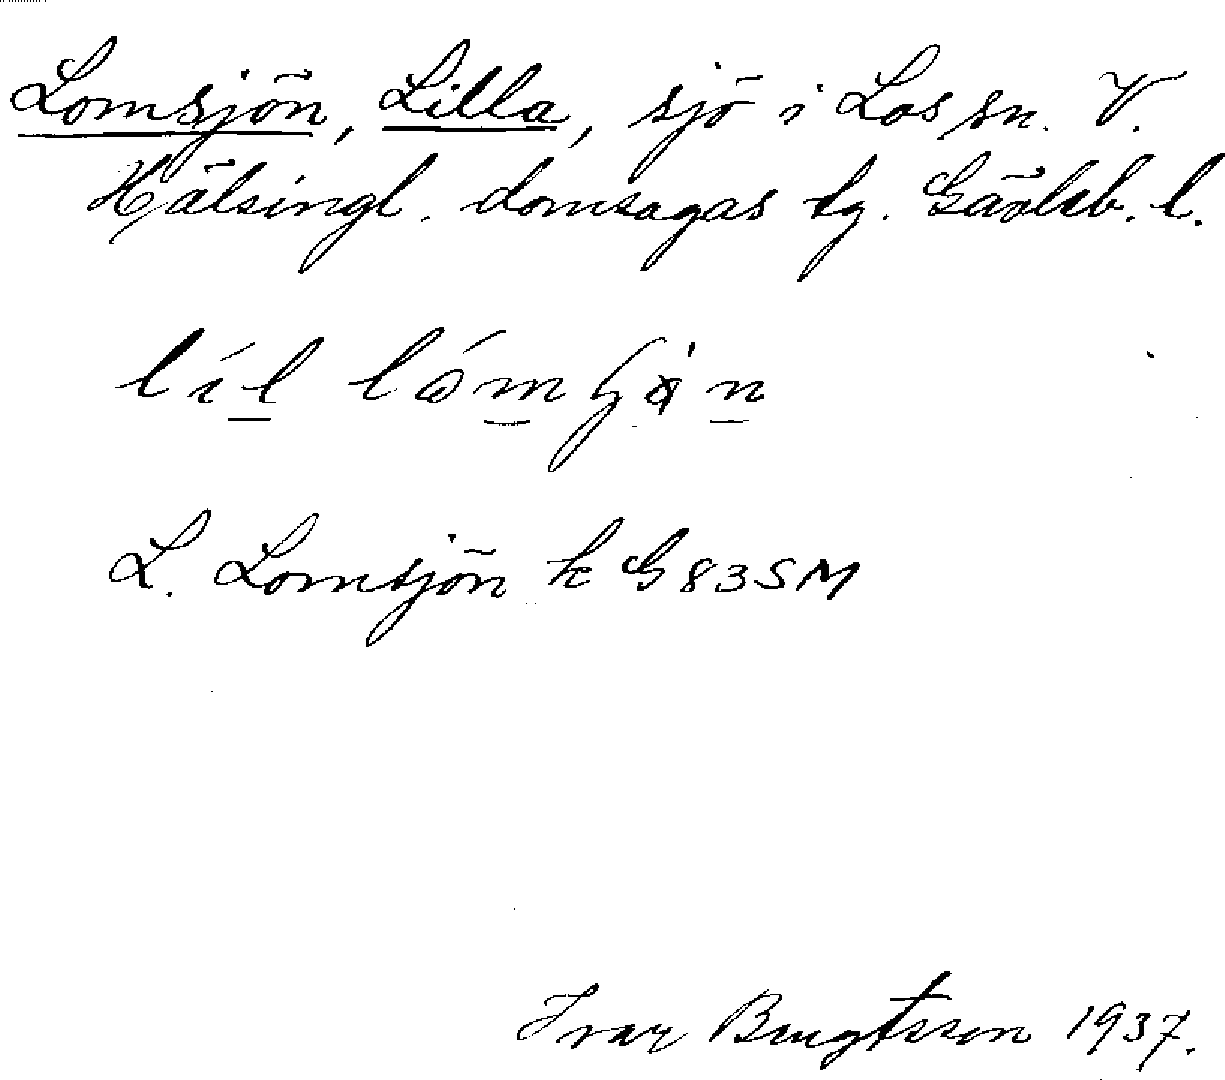 Lomsjön, Lilla, sjö i Los sn. V.
Hälsingl. domsagas tg. Gävleb. l.
L. Lomsjön k G 83 SM
Ivar Bengtsson 1937.